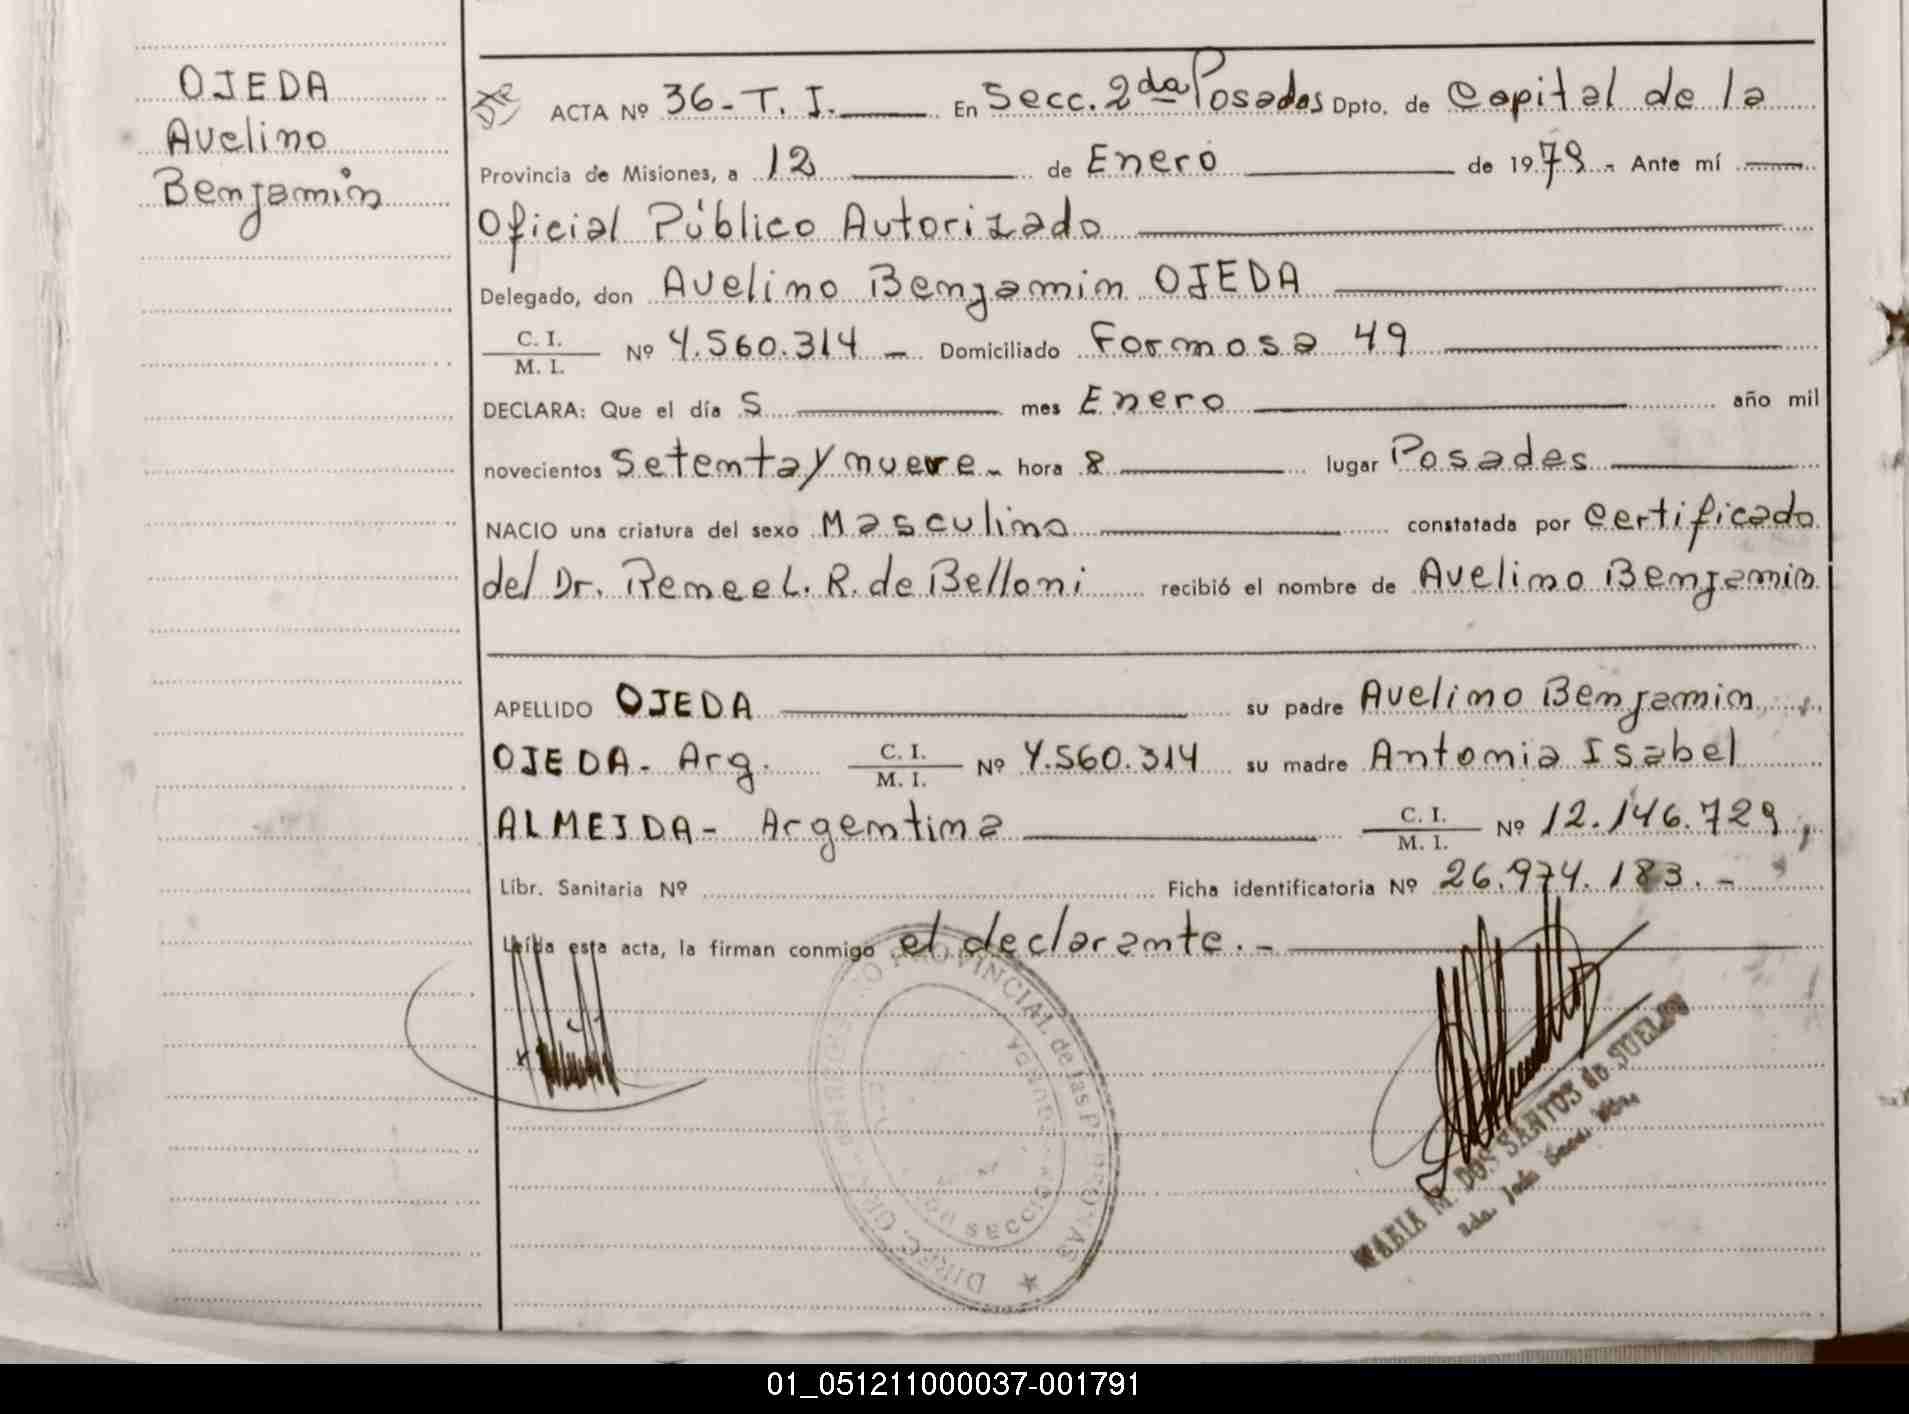 OJEDA
Avelino
Benjamin
ACTA Nº 36-T.I. En Secc. 2da Posadas Dpto. de Capital de la
Provincia de Misiones, a 12 de Enero de 1979.- Ante mí
Oficial Público Autorizado
Delegado, don Avelino Benjamin OJEDA
C. I.
M. I. Nº 4.560.314 - Domiciliado Formosa 49
DECLARA: Que el día 5 mes Enero año mil
novecientos setenta y nueve - hora 8 lugar Posadas
NACIO una criatura del sexo Masculino constatada por certificado
del Dr. Renee L. R. de Belloni recibió el nombre de Avelino Benjamin
APELLIDO OJEDA su padre Avelino Benjamin
OJEDA - Arg. C. I.
M. I. Nº 4.560.314 su madre Antonia Isabel
ALMEIDA - Argentina C. I.
M. I. Nº 12.146.729,
Libr. Sanitaria Nº Ficha identificatoria Nº 26.974.183.-
Leída esta acta, la firman conmigo el declarante.-
PROVINCIAL de las PERSONAS
DIREC.
SECCION
MARIA M. DOS SANTOS de SUELDO
01_051211000037-001791